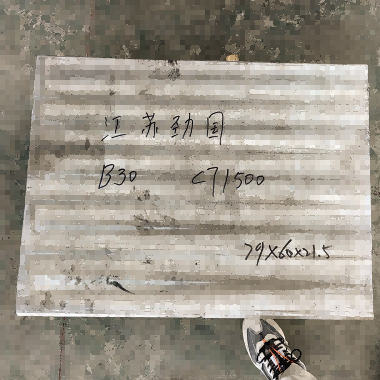 江苏劲国
B30 C71500
79X60X21.5